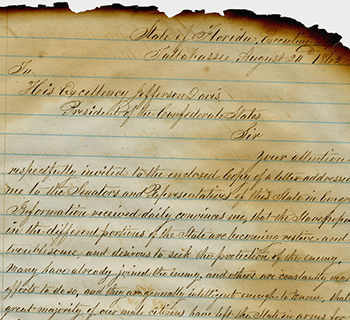 State of Florida, Executive
Tallahassee August 20th 1862
To
His Excellency Jefferson Davis,
President of the Confederate States
Sir
Your attention
respectfully invited to the enclosed Copy of a letter addresse
me to the Senators and Representatives of this State in Congr
Information received daily convinces me, that the Slave popu
in the different portions of the State are becoming restive an
troublesome, and desirous to seek the protection of the enemy,
many have already joined the enemy, and others are constantly ma
efforts to do so, and they are generally intelligent enough to know, that
great majority of our male citizens have left the State in arms for